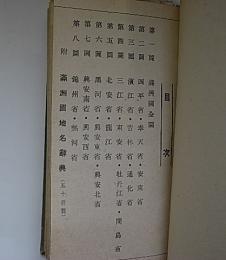 目次
第一圖 滿洲國全圖
第二圖 四平省・奉天省・安東省
第三圖 濱江省・吉林省・通化省
第四圖 三江省・東安省・牡丹江省・間島省
第五圖 北安省・龍江省
第六圖 黑河省・興安東省・興安北省
第七圖 興安南省・興安西省
第八圖 錦州省・熱河省
附 滿洲國地名辭典(五十音順)